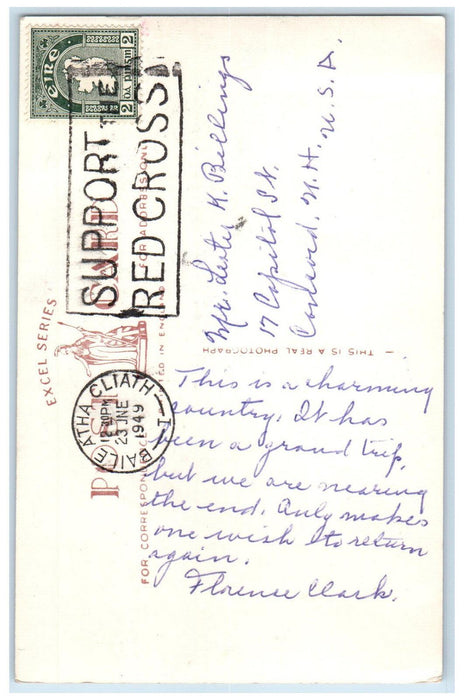 EIRE
2 DA PINGIN 2
SUPPORT THE
RED CROSS
EXCEL SERIES
POST CARD
FOR CORRESPONDENCE
FOR ADDRESS ONLY
ED IN ENGLAND
THIS IS A REAL PHOTOGRAPH
BAILE ATHA CLIATH
PM
23 JNE
1949
Mr. Lester M. Billings
17 Capitol St.
Concord, N.H. U.S.A.
This is a charming
country. It has
been a grand trip,
but we are nearing
the end. Only makes
one wish to return
again.
Florence Clark.